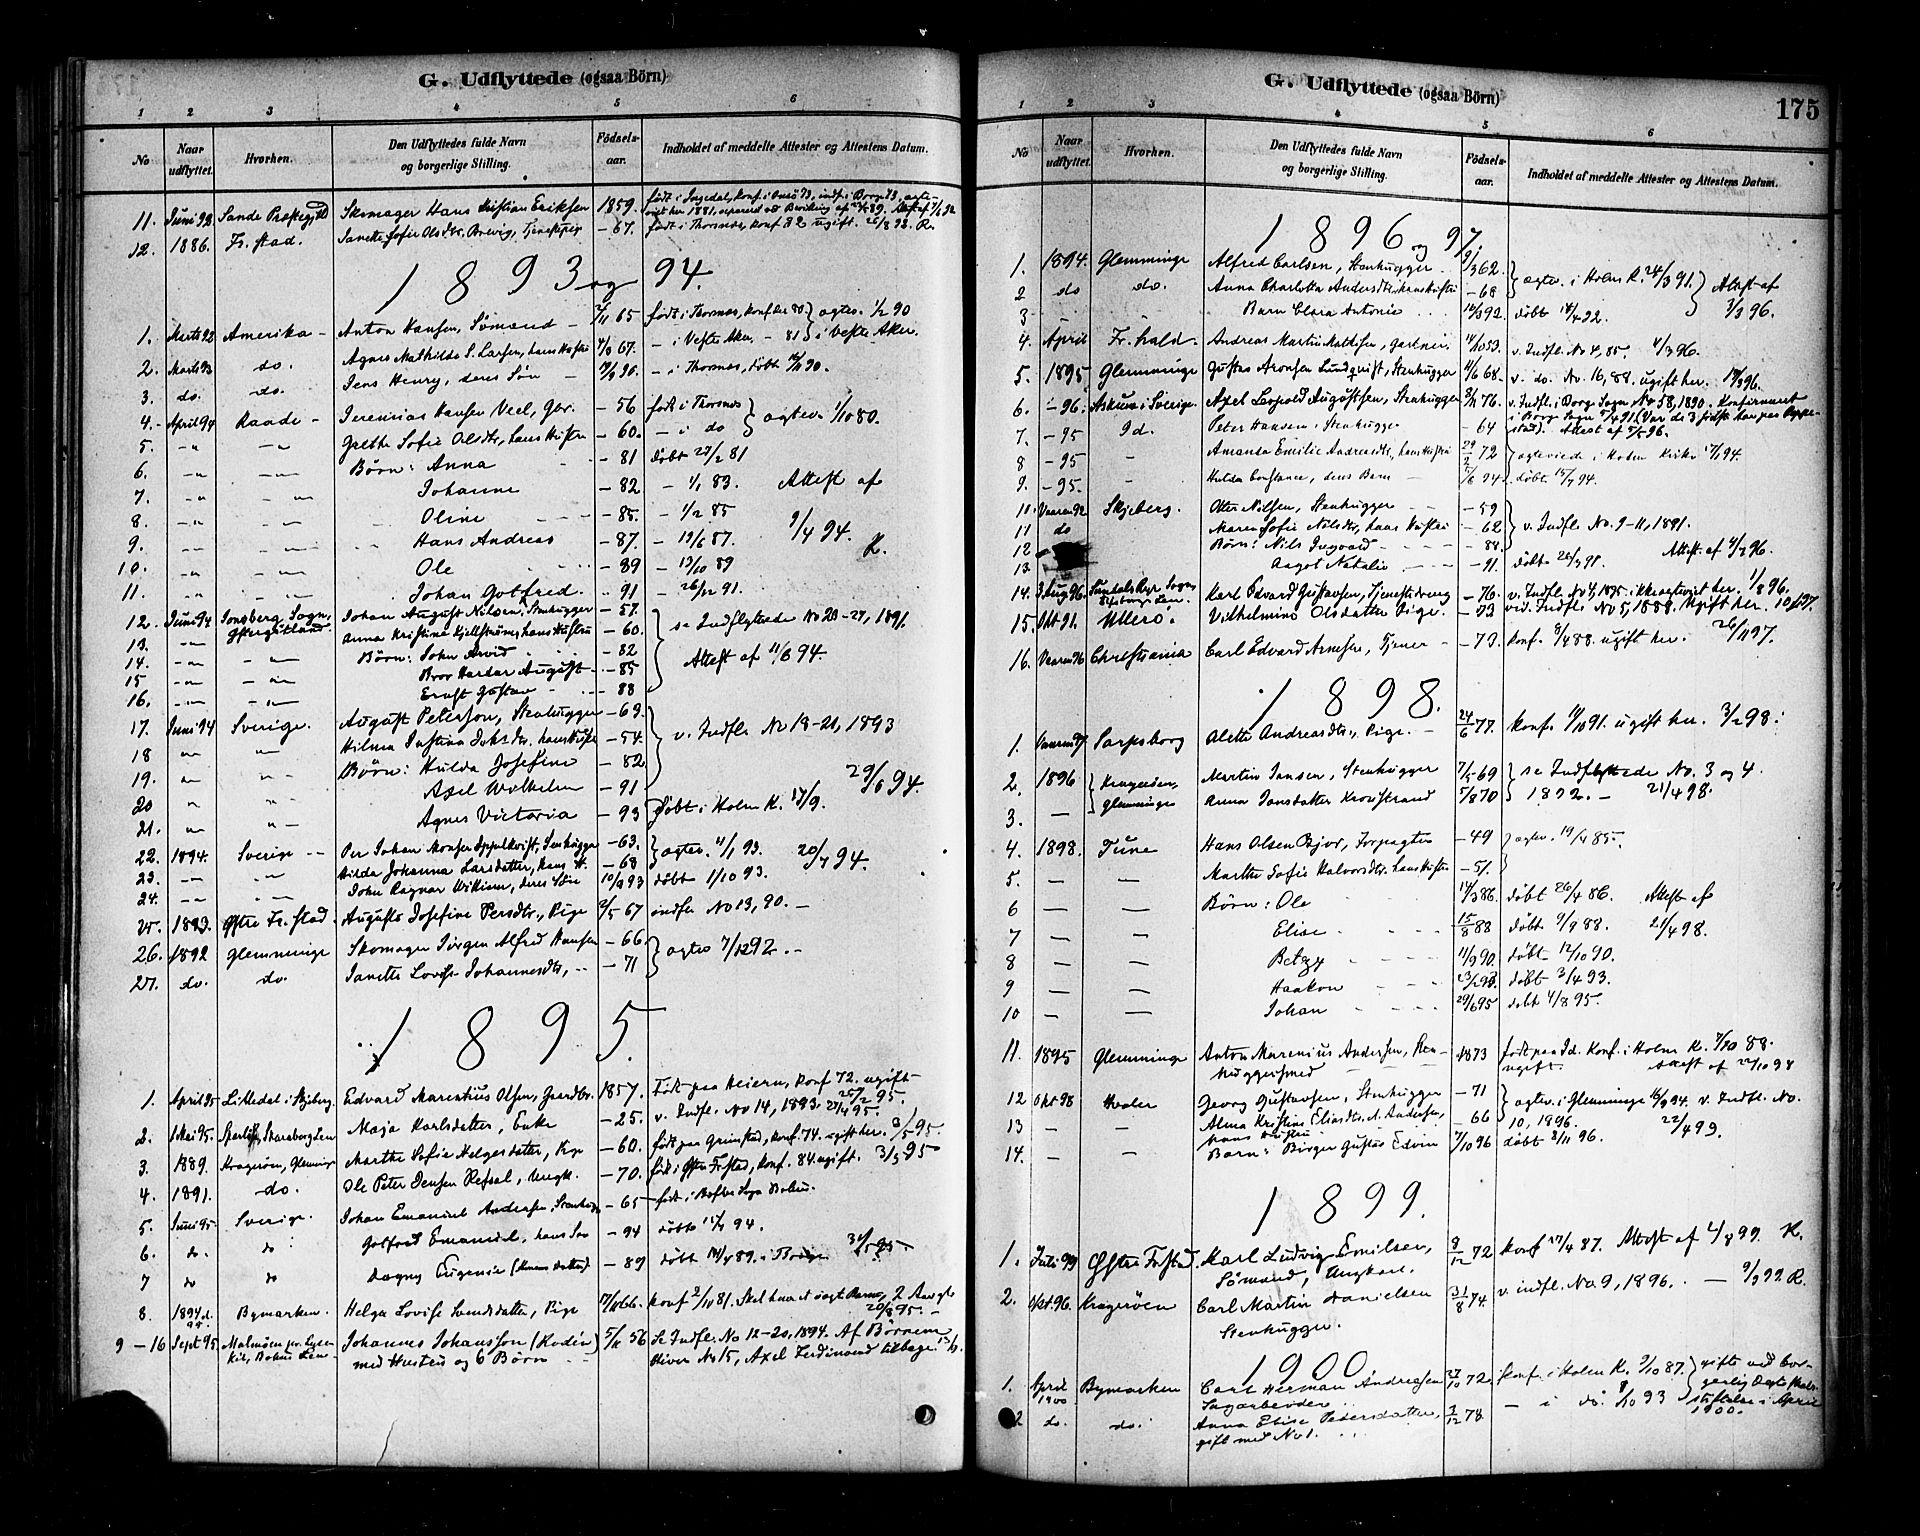 G. Udflyttede (ogsaa Börn)
1 2 3 4 5 6
No Naar udflyttet. Hvorhen. Den Udflyttedes fulde Navn og borgerlige Stilling. Födsels-aar. Indholdet af meddelte Attester og Attestens Datum.
11. Juni 92 Sande Præstegj Skomager Hans Kristian Eriksen 1859. født i Ingedal, konf. i Onsø 73, indfl. i Borge 73
12. 1886. Fr. stad. Janette Sofie Olsdtr. Brevig, Tjenestepige – 67. født i Thorsnes, konf 82 ugift. 26/8 93. R.
1893 og 94.
1. Marts 92 Amerika – Anton Hansen, Sømand – 7/11 65 født i Thorsnes, konf. her 80 } agtev. 1/2 90
2. Marts 93 do. Agnes Mathilde S. Larsen, hans Hustru 4/9 67. – i Vestre Aker, – 81 } i Vestre Aker.
3. do. do. Jens Henry, deres Søn – 90. – i Thorsnes, døbt 90.
4. April 94 Raade – Jeremias Hansen Veel, Gbr. – 56 født i Thorsnes } agtev. 1/10 80.
5. – " – " Grethe Sofie Olsdtr, hans Hustru – 60. – i do
6. – " – " Børn: Anna – 81 døbt 27/2 81
7. – " – " Johanne – 82 – 1/1 83. Attest af
8. – " – " Oline – 85. – 1/2 85
9. – " – " Hans Andreas – 87. – 19/6 87. 9/4 94. R.
10. – " – " Ole – 89 – 13/10 89
11. – " – " Johan Gotfred – 91 – 26/12 91.
12. Juni 94 Jonsberg Sogn, Østergøtland. Johan August Nilsen, Stenhugger – 57. } se Indflyttede No 23-27, 1891.
13. – " Anna Kristine Kjellstrøm, hans Hustru – 60.
14. – " – " Børn: John Arvid – 82 Attest af 11/6 94.
15 – " – " Bror Hardar August – 85
16. – " – " Ernst Gustav – 88
17. Juni 94 Sverige. August Peterson, Stenhugger – 69. } v. Indfl. No 18-21, 1893
18 " " Hilma Justina Johsdtr. hans Hustru – 54.
19. " " Børn: Hulda Josefine – 82
20 " " Axel Wilhelm – 91 29/6 94.
21. " " Agnes Victoria – 93 døbt i Holm K. 17/9.
22. 1894. Sverige – Per Johan Monsen Appelkvist, Stenhugger – 63. } agtev. 4/1 93. 20/7 94.
23. – " – " Hilda Johanna Larsdatter, hans H. – 68
24. – " – " John Ragnar William, deres Søn 10/9 93 døbt 1/10 93.
25. 1893. Østre Fr. stad. Augusta Josefine Persdtr., Pige 2/5 67 indfl. No 13, 90. –
26. 1892 Glemminge Skomager Jørgen Alfred Hansen – 66. } agtev 7/12 92. –
27. do. do. Janette Lovise Johannesdtr, – 71
1895.
1. April 95 Littedal i Skjeberg. Edvard Marentius Olsen, Gaardbr. 1857. Født paa Heiern, konf 72. ugift – 25/2 95.
2. 1 Mai 95. Skaraborg Len Maja Karlsdatter, Enke – 25. v. Indfl. No 14, 1893. 27/4 95.
3. 1889. Kragerøen, Glemminge Marthe Sofie Helgesdatter, Pige – 60. født paa Grimstad, konf. 74. ugift her. 3/5 95.
4. 1891. do. Ole Peter Jensen Refsal, Ungk. – 70. født i Østre Frstad, konf. 84. ugift. 3/5 95
5. Juni 95 Sverige. Johan Emanuel Andersen, Stenhugger – 65 – født i Sogn Bohus.
6. do. do. Gotfred Emanuel, hans Søn – 94 døbt 94.
7 do do Dagny Eugenie – 89 døbt 89 i Borge 31/5 95.
8. 1894 Bymarken. Helga Lovise Lundsdatter, Pige 66. konf 2/10 81. 20/8 95. –
9 – 16 Sept 95. Malmøen Bohus Len – Johannes Johansson (Rodin) 5/11 56 Se Indfl. No 12-20, 1894. Af Børnene
med Hustru og 6 Børn bliver No 15, Axel Ferdinand tilbage.
G. Udflyttede (ogsaa Börn) 175
1 2 3 4 5 6
No Naar udflyttet. Hvorhen. Den Udflyttedes fulde Navn og borgerlige Stilling. Födsels-aar. Indholdet af meddelte Attester og Attestens Datum.
1896 og 97.
1. 1894. Glemminge Alfred Carlsen, Stenhugger 9/3 62. } agtev. i Holm K. 24/3 91. } Attest af
2 do do. Anna Charlotta Andersdtr. hans Hustru – 68
3 – – Barn Clara Antonie 92. døbt 92. 3/3 96.
4. April Fr. hald – Andreas Martin Mathisen, gartner. 53. v. Indfl. No 4, 85. 4/3 96.
5. 1895 Glemminge Gustav Aronsen Lundqvist, Stenhugger 11/6 68. v. do. No. 16, 88. ugift her. 96.
6. – 96. Askum i Sverige. Axel Leopold Augustsen, Stenhugger 76. v. Indfl. i Borge Sogn No 58, 1890. Konfirmeret i Borge Sogn 91. Attest af 5/5 96.
7. – 95 Id. Peter Hansen, Stenhugger – 64
8 – 95 – Amanda Emilie Andreasdtr, hans Hustru 29/2 72 agteviede i Holm Kirke 94.
9. – 95. – Hulda Constance, deres Barn – 94. døbt. 94.
10. Vaaren 92 Skjeberg. Otter Nilsen, Stenhugger – 59 } v. Indfl. No. 9-11, 1891.
11 do Maren Sofie Nilsdtr, hans Hustru – 62
12 Børn: Nils Ingvard – 88. Attest. af 4/7 96.
13. Aagot Natalie – 91. døbt 91.
14. 3. Aug 96. Sundals Ryr Sogn Elfsborgs Len. Karl Edvard Gustavsen, Tjenestedreng – 76. v. Indfl. No 4, 1895 1/8 96.
15. Okt 91. Ullerø. Vilhelmine Olsdatter Pige. – 73 vid. Indfl. No 5, 1888. Ugift her. 10/ 97.
16. Vaaren 96 Christiania Carl Edvard Arnesen, Tjener – – 73. konf. 8/4 88. ugift her. 26/11 97.
1898.
1. Vaaren 97 Sarpsborg Alette Andreasdtr, Pige. – 24/6 77. konf. 11/10 91. ugift her. 3/2 98.
2. 1896 { Kragerøen, Martin Jansen, Stenhugger 7/5 69 } se Indflyttede No. 3 og 4
3. – Glemminge Anna Jansdatter Kronstrand 5/8 70 1892. – 21/4 98.
4. 1898. Tune Hans Olsen Bjør, Forpagter – 49 } agtev. 19/4 85.
5. – – Marthe Sofie Halvorsdtr. hans Hustru – 51.
6 – – Børn: Ole 14/3 86. døbt 26/4 86. Attest af
7 – – Elise – 15/8 88 døbt 9/9 88. 21/4 98.
8 – – Betzy 11/9 90. døbt 12/10 90.
9 – – Haakon 23/2 93. døbt 3/4 93.
10 – – Johan 29/6 95 døbt 4/8 95.
11. 1895 Glemminge Anton Marenius Andersen, Sten- 1873 født paa Id. Konf. i Holm K. 7/10 88.
huggersmed ugift. Attest af 22/10 98
12 Okt 98 Hvaler Georg Gustavsen, Stenhugger – 71 } agtev. i Glemminge 94. v. Indfl. No.
13 – – Alma Kristine Eliasdtr. A. Andersen, hans Hustru – 66 10, 1896. 22/4 99.
14. – – Barn: Birger Gustav Edvin 7/10 96 døbt 8/11 96.
1899.
1. Juli 99 Østre Frstad. Karl Ludvig Emilsen, 8/12 72 konf 17/4 87. Attest af 4/8 99. R.
Sømand, Ungkarl.
2. Okt. 96. Kragerøen Carl Martin Danielsen 31/8 74. v. indfl. No. 9, 1896. – 9/9 99 R.
Stenhugger.
1900
1. April 1900 Bymarken Carl Herman Andreasen 27/10 72. konf. i Holm K. 9/10 87. } gifte ved bor-
Sagarbeider gerlig Ægteskabs-
2 do. do. Anna Elise Pedersdatter, 3/12 78. – i do. 8/10 93 stiftelse i April
gift med No 1. 1900.